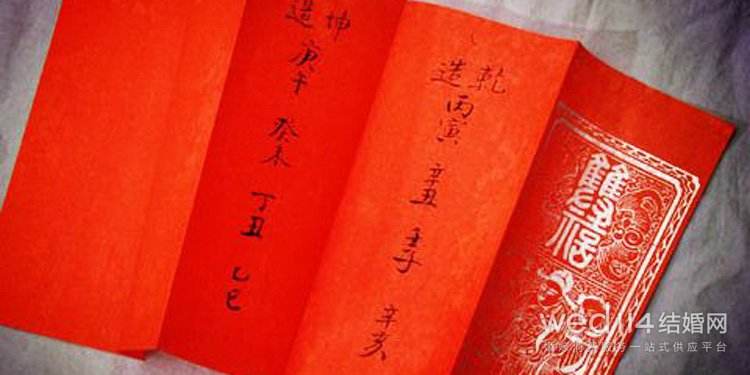 雙
乾造 丙寅 辛丑 壬子 辛亥
坤造 庚午 癸未 丁丑 乙巳
wed114结婚网
一站式供应平台